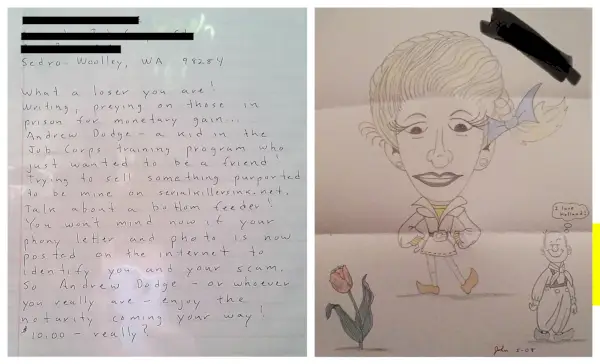 Sedro-Woolley, WA 98284
What a loser you are!
Writing, preying on those in
prison for monetary gain...
Andrew Dodge - a kid in the
Job Corps training program who
just wanted to be a friend!
Trying to sell something purported
to be mine on serialkillersink.net.
Talk about a bottom feeder!
You won't mind now if your
phony letter and photo is now
posted on the internet to
identify you and your scam.
So Andrew Dodge - or whoever
you really are - enjoy the
notarity coming your way!
$10.00 - really?
I love
Holland!
John 5-08